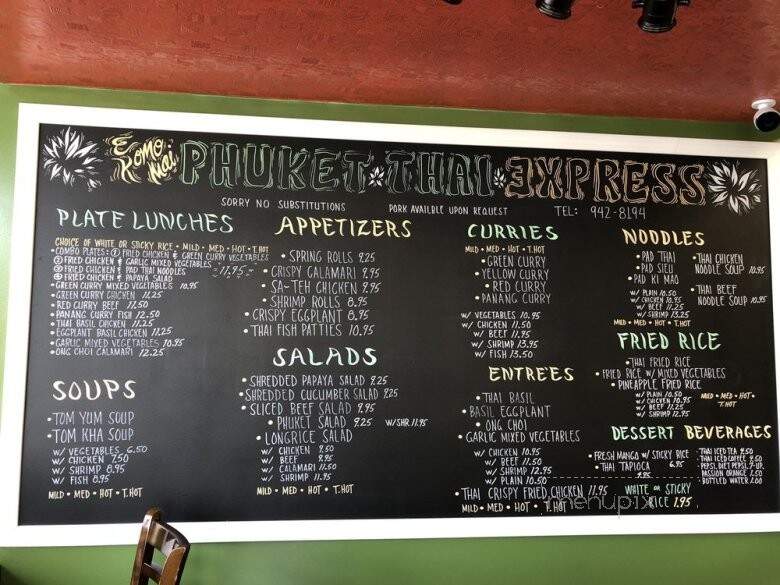 E Komo Mai
PHUKET THAI EXPRESS
SORRY NO SUBSTITUTIONS
PORK AVAILBLE UPON REQUEST
TEL: 942-8194
PLATE LUNCHES
CHOICE OF WHITE OR STICKY RICE • MILD • MED • HOT • T.HOT
• COMBO PLATES: ① FRIED CHICKEN & GREEN CURRY VEGETABLES
② FRIED CHICKEN & GARLIC MIXED VEGETABLES
③ FRIED CHICKEN & PAD THAI NOODLES 11.95
④ FRIED CHICKEN & PAPAYA SALAD
• GREEN CURRY MIXED VEGETABLES 10.95
• GREEN CURRY CHICKEN 11.25
• RED CURRY BEEF 11.50
• PANANG CURRY FISH 12.50
• THAI BASIL CHICKEN 11.25
• EGGPLANT BASIL CHICKEN 11.25
• GARLIC MIXED VEGETABLES 10.95
• ONG CHOI CALAMARI 12.25
SOUPS
• TOM YUM SOUP
• TOM KHA SOUP
W/ VEGETABLES 6.50
W/ CHICKEN 7.50
W/ SHRIMP 8.95
W/ FISH 8.95
MILD • MED • HOT • T.HOT
APPETIZERS
• SPRING ROLLS 9.25
• CRISPY CALAMARI 9.95
• SA-TEH CHICKEN 9.95
• SHRIMP ROLLS 8.95
• CRISPY EGGPLANT 8.95
• THAI FISH PATTIES 10.95
SALADS
• SHREDDED PAPAYA SALAD 9.25
• SHREDDED CUCUMBER SALAD 9.25
• SLICED BEEF SALAD 9.95
• PHUKET SALAD 9.25 W/SHR.11.95
• LONGRICE SALAD
W/ CHICKEN 9.50
W/ BEEF 9.95
W/ CALAMARI 11.50
W/ SHRIMP 11.95
MILD • MED • HOT • T.HOT
CURRIES
MILD • MED • HOT • T.HOT
• GREEN CURRY
• YELLOW CURRY
• RED CURRY
• PANANG CURRY
W/ VEGETABLES 10.95
W/ CHICKEN 11.50
W/ BEEF 11.95
W/ SHRIMP 13.95
W/ FISH 13.50
ENTREES
• THAI BASIL
• BASIL EGGPLANT
• ONG CHOI
• GARLIC MIXED VEGETABLES
W/ CHICKEN 10.95
W/ BEEF 11.50
W/ SHRIMP 12.95
W/ PLAIN 10.50
• THAI CRISPY FRIED CHICKEN 11.95
MILD • MED • HOT • T.HOT
NOODLES
• PAD THAI
• PAD SIEU
• PAD KI MAO
W/ PLAIN 10.50
W/ CHICKEN 10.95
W/ BEEF 11.25
W/ SHRIMP 13.25
MILD • MED • HOT • T.HOT
• THAI CHICKEN
NOODLE SOUP 10.95
• THAI BEEF
NOODLE SOUP 10.95
FRIED RICE
• THAI FRIED RICE
• FRIED RICE W/ MIXED VEGETABLES
• PINEAPPLE FRIED RICE
W/ PLAIN 10.50
W/ CHICKEN 10.95
W/ BEEF 11.25
W/ SHRIMP 12.95
MILD • MED • HOT •
T.HOT
DESSERT
• FRESH MANGO W/ STICKY RICE
6.95
• THAI TAPIOCA
WHITE OR STICKY
RICE 1.95
BEVERAGES
• THAI ICED TEA
• THAI ICED COFFEE
• PEPSI, DIET PEPSI, 7-UP,
PASSION ORANGE 1.50
• BOTTLED WATER 1.00
menupix